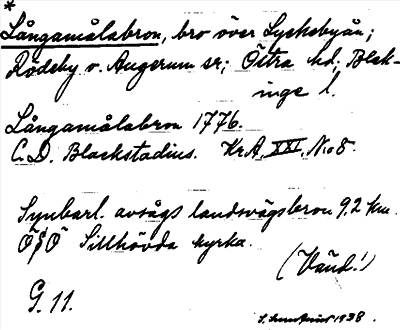 *
Långamålabron, bro över Lyckebyån;
Rödeby o. Augerum sr; Östra hd; Blek-
inge l.
Långamålabron 1776.
C. D. Blackstadius. KrA, XXI, No 8.
Synbarl. avsågs landsvägsbron 9,2 km.
ÖSÖ Sillhövda kyrka.
(Vänd!)
G. 11.
1938.